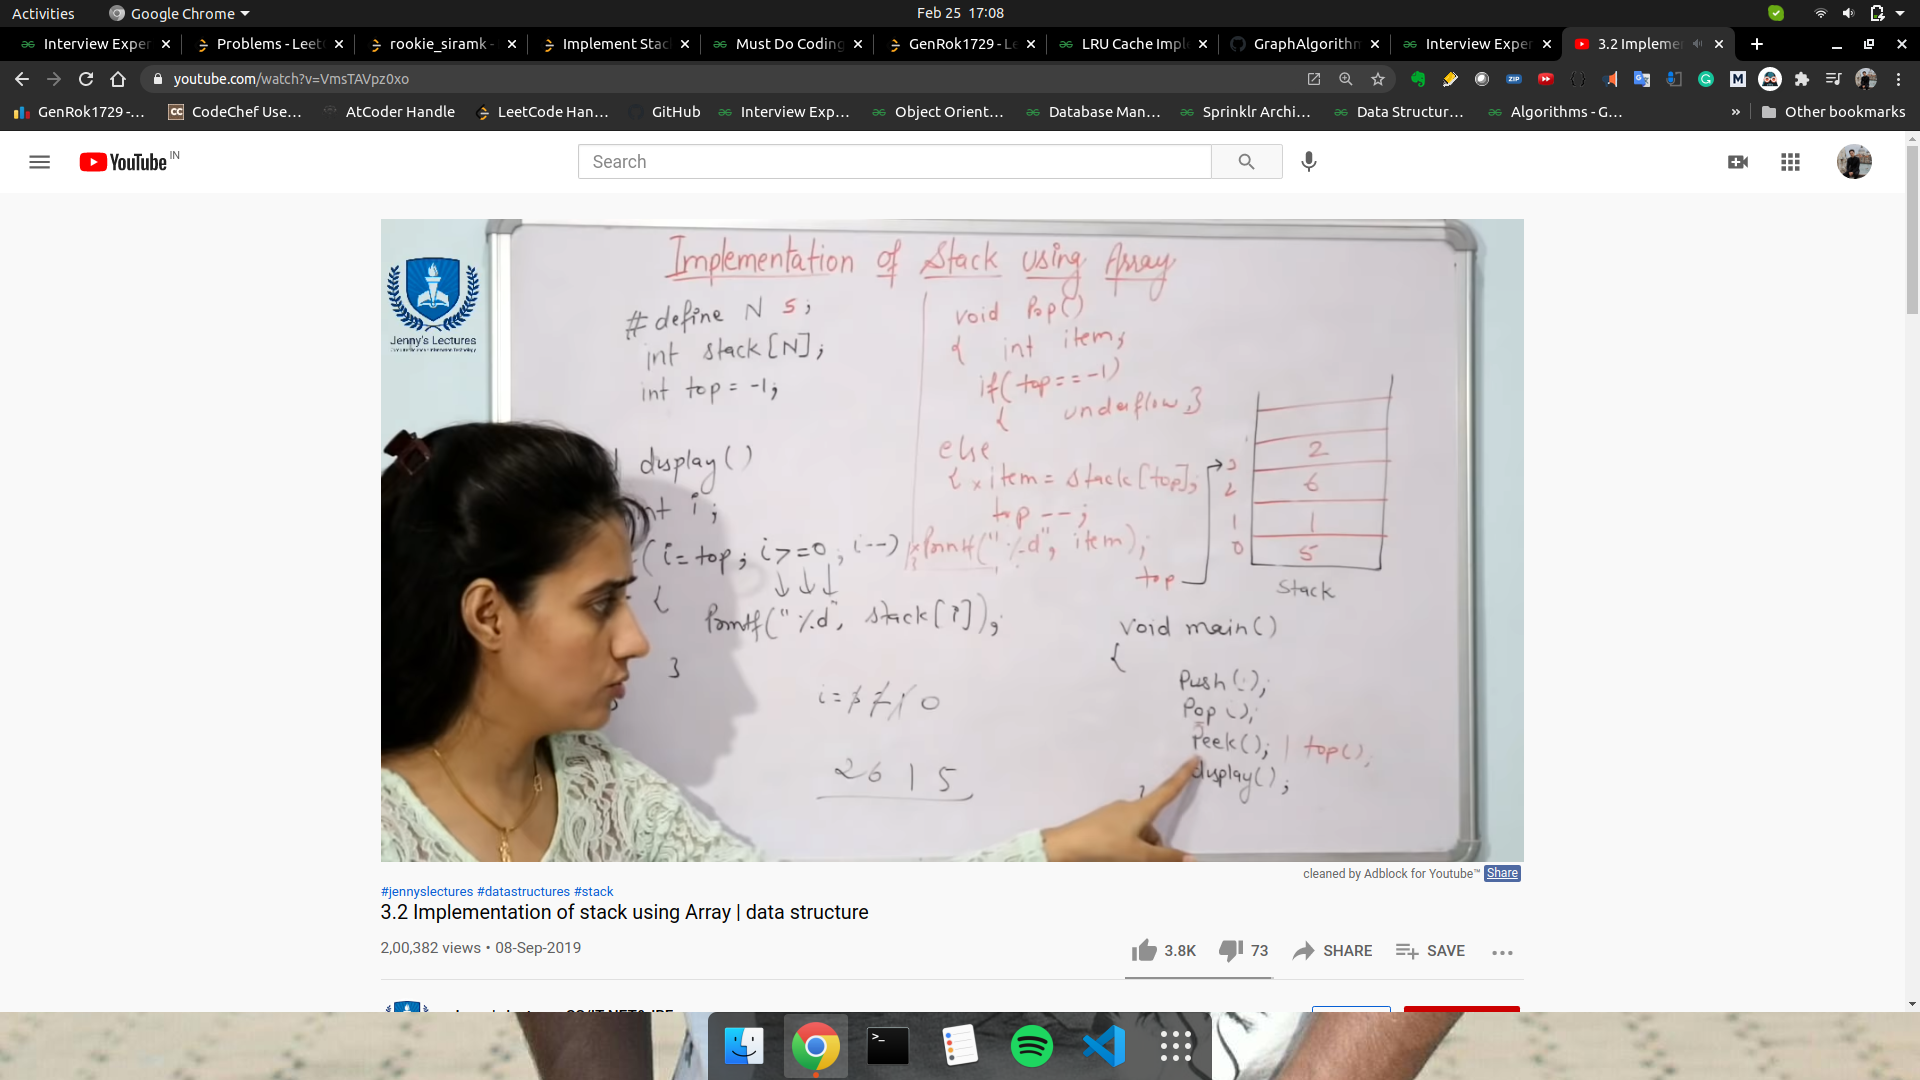 Activities
Google Chrome
Feb 25 17:08
Interview Exper
Problems - Leet
rookie_siramk -
Implement Stac
Must Do Coding
GenRok1729 - Le
LRU Cache Impl
GraphAlgorithm
Interview Exper
3.2 Implemen
youtube.com/watch?v=VmsTAVpz0xo
GenRok1729 -...
CodeChef Use...
AtCoder Handle
LeetCode Han...
GitHub
Interview Exp...
Object Orient...
Database Man...
Sprinklr Archi...
Data Structur...
Algorithms - G...
»
Other bookmarks
YouTube IN
Search
Jenny's Lectures
Implementation of Stack using Array
#define N 5;
int stack[N];
int top = -1;
display()
int i;
(i=top; i>=0; i--)
{
Printf("%d", stack[i]);
}
i=
0
2 6 1 5
void Pop()
{ int item;
if(top==-1)
{ underflow }
else
{ item = stack[top];
top--;
Printf("%d", item);
top
3
2
1
0
2
6
1
5
Stack
void main()
{
Push();
Pop();
Peek(); | top();
display();
cleaned by Adblock for Youtube™ Share
#jennyslectures #datastructures #stack
3.2 Implementation of stack using Array | data structure
2,00,382 views • 08-Sep-2019
3.8K
73
SHARE
SAVE